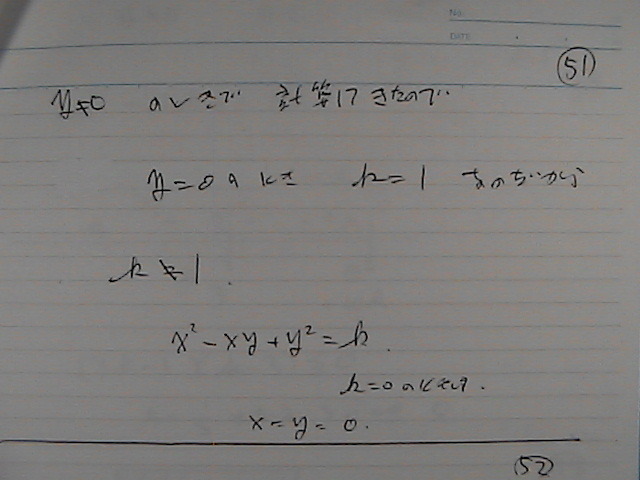 No.
DATE
51
y≠0 のときで 計算してきたので
y=0 のとき k=1 なのだから
k≠1.
x²-xy+y²=k.
k=0 のときは.
x=y=0.
52